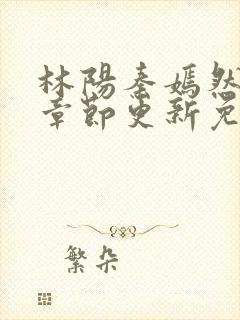 林陽秦嫣然
章節更新免
繁朵